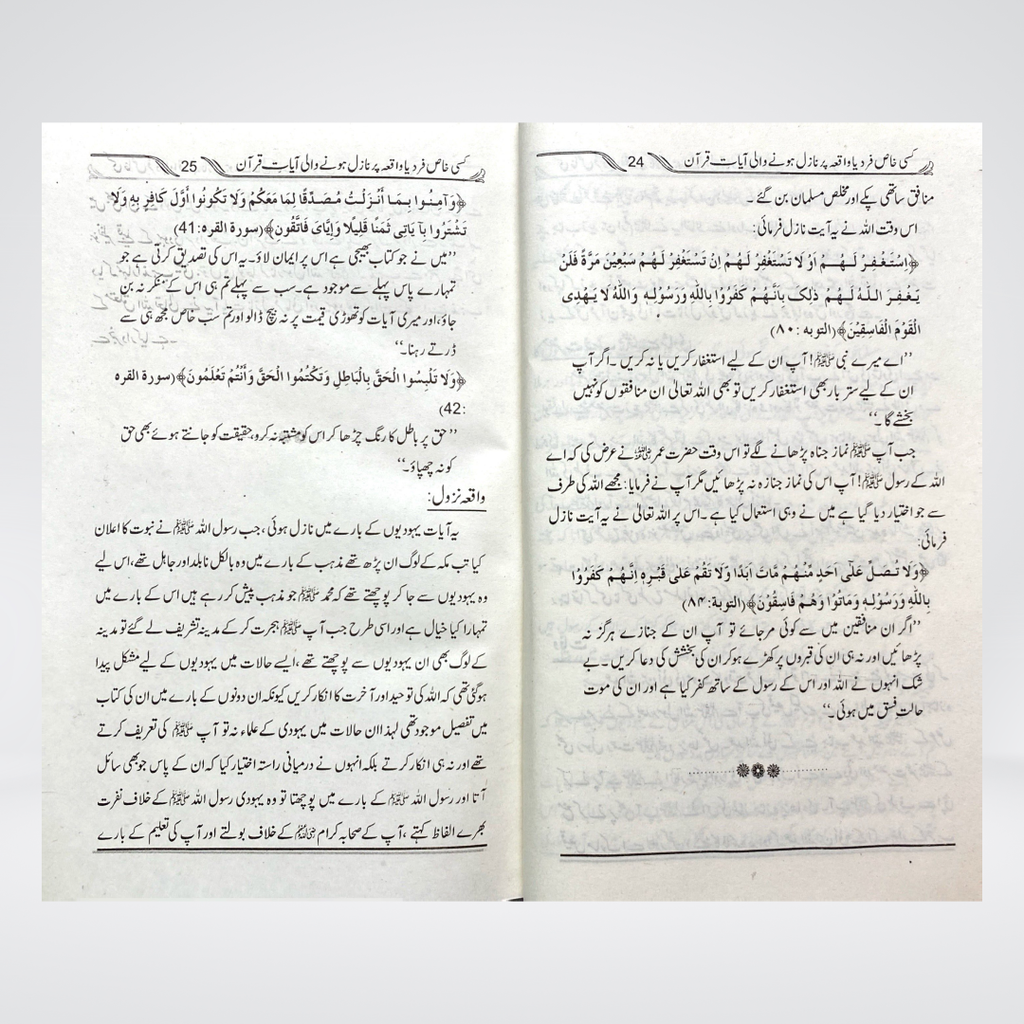 کسی خاص فرد یا واقعہ پر نازل ہونے والی آیات قرآن 24
منافق ساتھی پکے اور مخلص مسلمان بن گئے ۔
اس وقت اللہ نے یہ آیت نازل فرمائی:
﴿اِسْتَغْفِرْ لَهُمْ اَوْ لَا تَسْتَغْفِرْ لَهُمْ اِنْ تَسْتَغْفِرْ لَهُمْ سَبْعِيْنَ مَرَّةً فَلَنْ
يَغْفِرَ اللّٰهُ لَهُمْ ذٰلِكَ بِاَنَّهُمْ كَفَرُوْا بِاللّٰهِ وَرَسُوْلِهٖ وَاللّٰهُ لَا يَهْدِى
الْقَوْمَ الْفَاسِقِيْنَ﴾(التوبه :۸۰)
’’اے میرے نبی ﷺ! آپ ان کے لیے استغفار کریں یا نہ کریں ۔ اگر آپ
ان کے لیے ستر بار بھی استغفار کریں تو بھی اللہ تعالیٰ ان منافقوں کو نہیں
بخشے گا ۔‘‘
جب آپ ﷺ نماز جناہ پڑھانے لگے تو اس وقت حضرت عمر نے عرض کی کہ اے
اللہ کے رسول ﷺ! آپ اس کی نماز جنازہ نہ پڑھائیں مگر آپ نے فرمایا: مجھے اللہ کی طرف
سے جو اختیار دیا گیا ہے میں نے وہی استعمال کیا ہے۔ اس پر اللہ تعالیٰ نے یہ آیت نازل
فرمائی:
﴿وَلَا تُصَلِّ عَلٰٓى اَحَدٍ مِّنْهُمْ مَّاتَ اَبَدًا وَلَا تَقُمْ عَلٰى قَبْرِهٖ اِنَّهُمْ كَفَرُوْا
بِاللّٰهِ وَرَسُوْلِهٖ وَمَاتُوْا وَهُمْ فَاسِقُوْنَ﴾(التوبة:۸۴)
’’اگر ان منافقین میں سے کوئی مر جائے تو آپ ان کے جنازے ہرگز نہ
پڑھائیں اور نہ ہی ان کی قبروں پر کھڑے ہو کر ان کی بخشش کی دعا کریں۔ بے
شک انہوں نے اللہ اور اس کے رسول کے ساتھ کفر کیا ہے اور ان کی موت
حالتِ فسق میں ہوئی۔‘‘
کسی خاص فرد یا واقعہ پر نازل ہونے والی آیات قرآن 25
﴿وَآمِنُوا بِمَا أَنْزَلْتُ مُصَدِّقًا لِمَا مَعَكُمْ وَلَا تَكُونُوا أَوَّلَ كَافِرٍ بِهِ وَلَا
تَشْتَرُوا بِآيَاتِي ثَمَنًا قَلِيلًا وَإِيَّايَ فَاتَّقُونِ﴾(سورة القره:41)
’’میں نے جو کتاب بھیجی ہے اس پر ایمان لاؤ۔ یہ اس کی تصدیق کرتی ہے جو
تمہارے پاس پہلے سے موجود ہے۔ سب سے پہلے تم ہی اس کے منکر نہ بن
جاؤ،اور میری آیات کو تھوڑی قیمت پر نہ بیچ ڈالو اور تم سب خاص مجھ ہی سے
ڈرتے رہنا۔‘‘
﴿وَلَا تَلْبِسُوا الْحَقَّ بِالْبَاطِلِ وَتَكْتُمُوا الْحَقَّ وَأَنْتُمْ تَعْلَمُونَ﴾(سورة القره
:42)
’’حق پر باطل کا رنگ چڑھا کر اس کو مشتبہ نہ کرو،حقیقت کو جانتے ہوئے بھی حق
کو نہ چھپاؤ۔‘‘
واقعہ نزول:
یہ آیات یہودیوں کے بارے میں نازل ہوئی،جب رسول اللہ ﷺ نے نبوت کا اعلان
کیا تب مکہ کے لوگ ان پڑھ تھے مذہب کے بارے میں وہ بالکل نابلد اور جاہل تھے،اس لیے
وہ یہودیوں سے جا کر پوچھتے تھے کہ محمد ﷺ جو مذہب پیش کر رہے ہیں اس کے بارے میں
تمہارا کیا خیال ہے اور اسی طرح جب آپ ﷺ ہجرت کر کے مدینہ تشریف لے گئے تو مدینہ
کے لوگ بھی ان یہودیوں سے پوچھتے تھے،ایسے حالات میں یہودیوں کے لیے مشکل پیدا
ہو گئی تھی کہ اللہ کی توحید اور آخرت کا انکار کریں کیونکہ ان دونوں کے بارے میں ان کی کتاب
میں تفصیل موجود تھی لہذا ان حالات میں یہودی کے علماء نہ تو آپ ﷺ کی تعریف کرتے
تھے اور نہ ہی انکار کرتے بلکہ انہوں نے درمیانی راستہ اختیار کیا کہ ان کے پاس جو بھی سائل
آتا اور رسول اللہ ﷺ کے بارے میں پوچھتا تو وہ یہودی رسول اللہ ﷺ کے خلاف نفرت
بھرے الفاظ کہتے ،آپ کے صحابہ کرام کے خلاف بولتے اور آپ کی تعلیم کے بارے